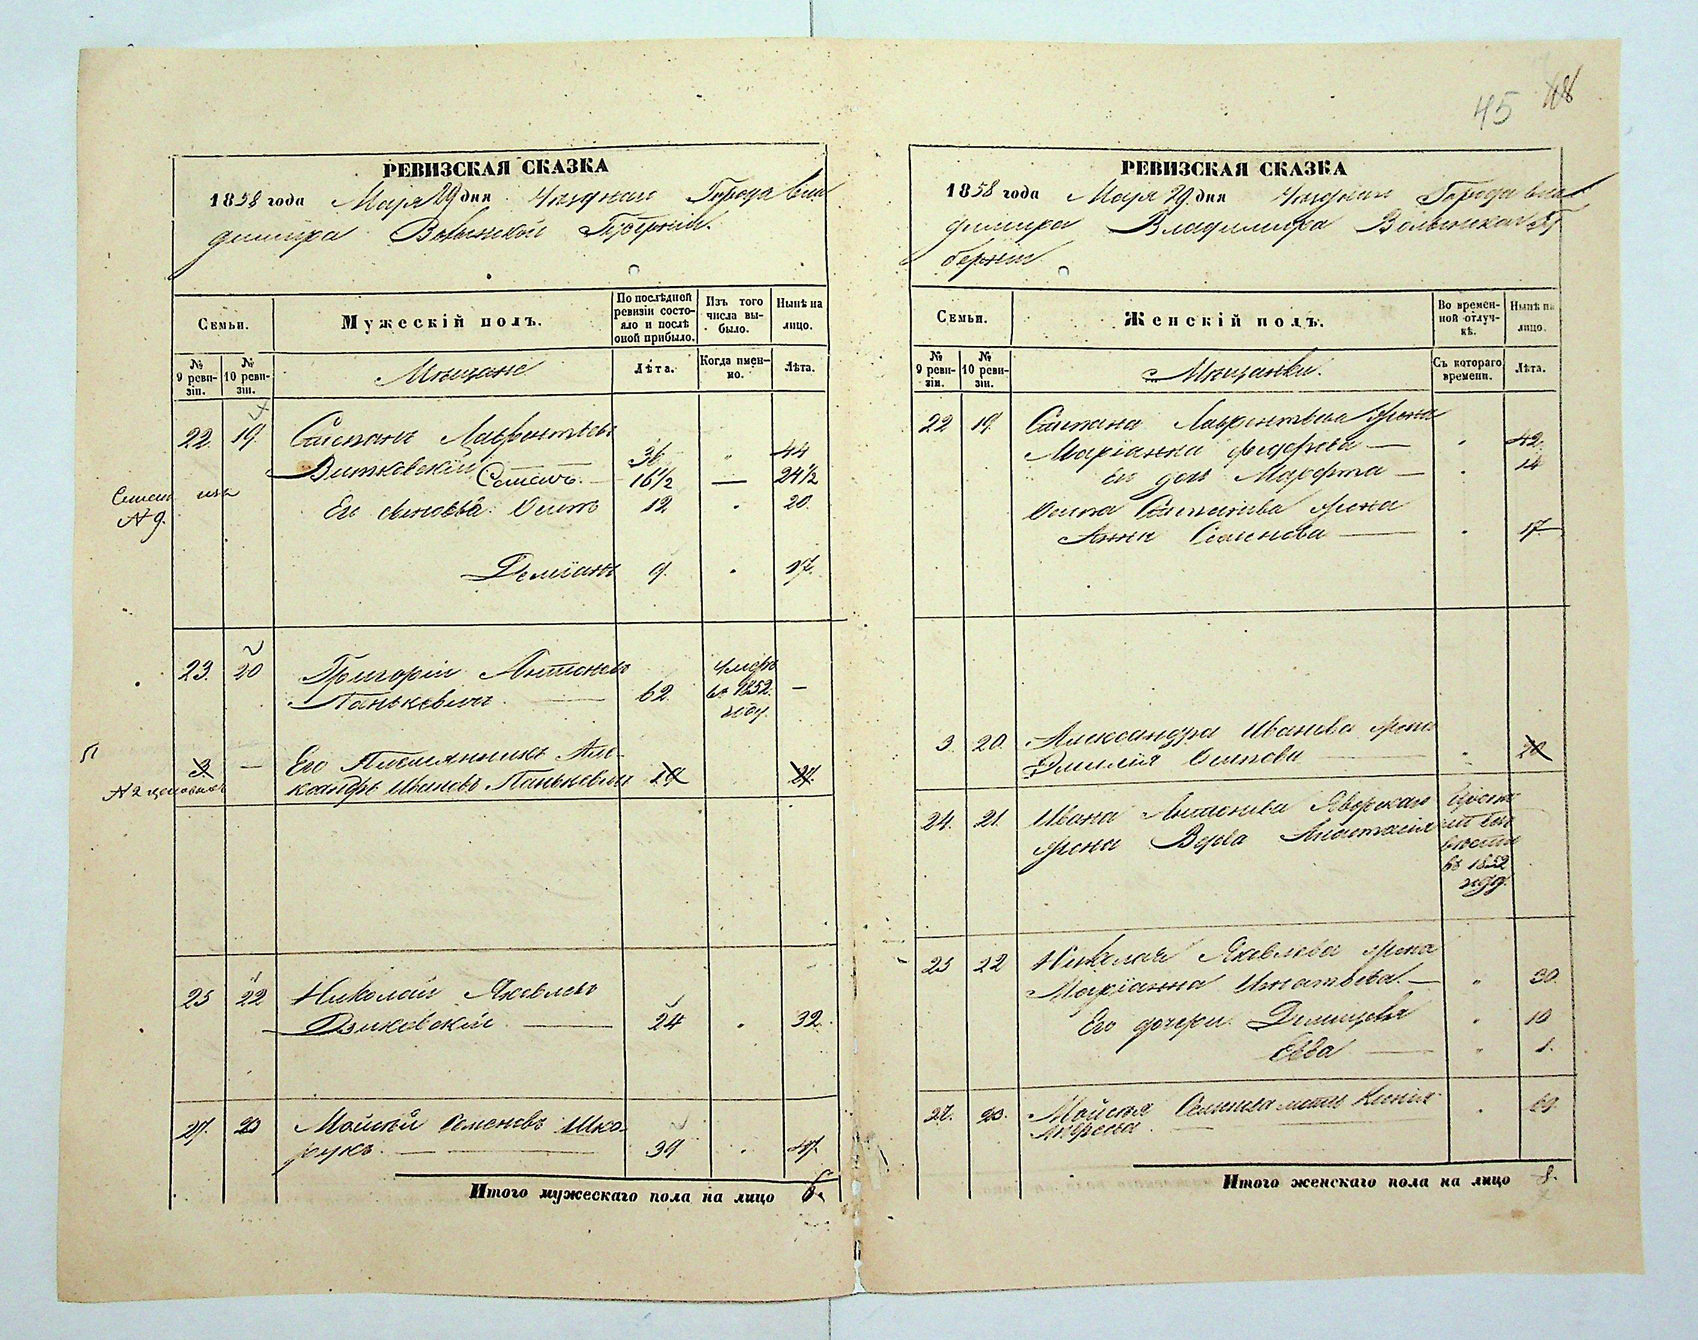 45 118
РЕВИЗСКАЯ СКАЗКА
1858 года Мая 29 дня Города Вла
димира Волынской Губерніи.
Семьи.
Мужескій полъ.
По послѣдней ревизіи состояло и послѣ оной прибыло.
Изъ того числа выбыло.
Нынѣ на лицо.
№ 9 ревизіи.
№ 10 ревизіи.
Мещане
Лѣта.
Когда именно.
Лѣта.
22. 19. Степанъ Лаврентьевъ
Витковскій 36 " 44
Семенъ. 16 1/2 — 24 1/2
№ 9.
Его сыновья Осипъ 12 " 20.
Демiанъ 9. " 17.
23. 20 Григорій Антоновъ
Панькевичъ — 62. умеръ въ 1852. году —
3 — Его Племянникъ Але
ксандръ Ивановъ Панькевичъ 19 27.
25 22 Николай Яковлевъ
Дзиковскій — 24 " 32.
27. 23 Мойсей Семеновъ Шка
рукъ. — 39 " 47.
Итого мужескаго пола на лицо 6.
РЕВИЗСКАЯ СКАЗКА
1858 года Мая 29 дня Города Вла
димира Владимира Волынской Гу
берніи
Семьи.
Женскій полъ.
Во временной отлучкѣ.
Нынѣ на лицо.
№ 9 ревизіи.
№ 10 ревизіи.
Мещанки.
Съ котораго времени.
Лѣта.
22 19. Степана Лаврентьева Жена
Маріанна Федорова — " 42.
Ей дочь Марфта — " 14
Осипа Степанова Жена
Анна Семенова — " 17
3. 20. Александра Иванова Жена
Эмилія Осипова " 20
24. 21. Ивана Антонова Яворскаго
жена Верва Анастасія въ 1852 году.
25 22 Николая Яковлева Жена
Маріанна Игнатьева. — " 30.
Его дочери Домицеля " 10
Евва — " 1.
27. 23. Мойсея Семенова мать Ксенія
Андреева. — " 69.
Итого женскаго пола на лицо 8.